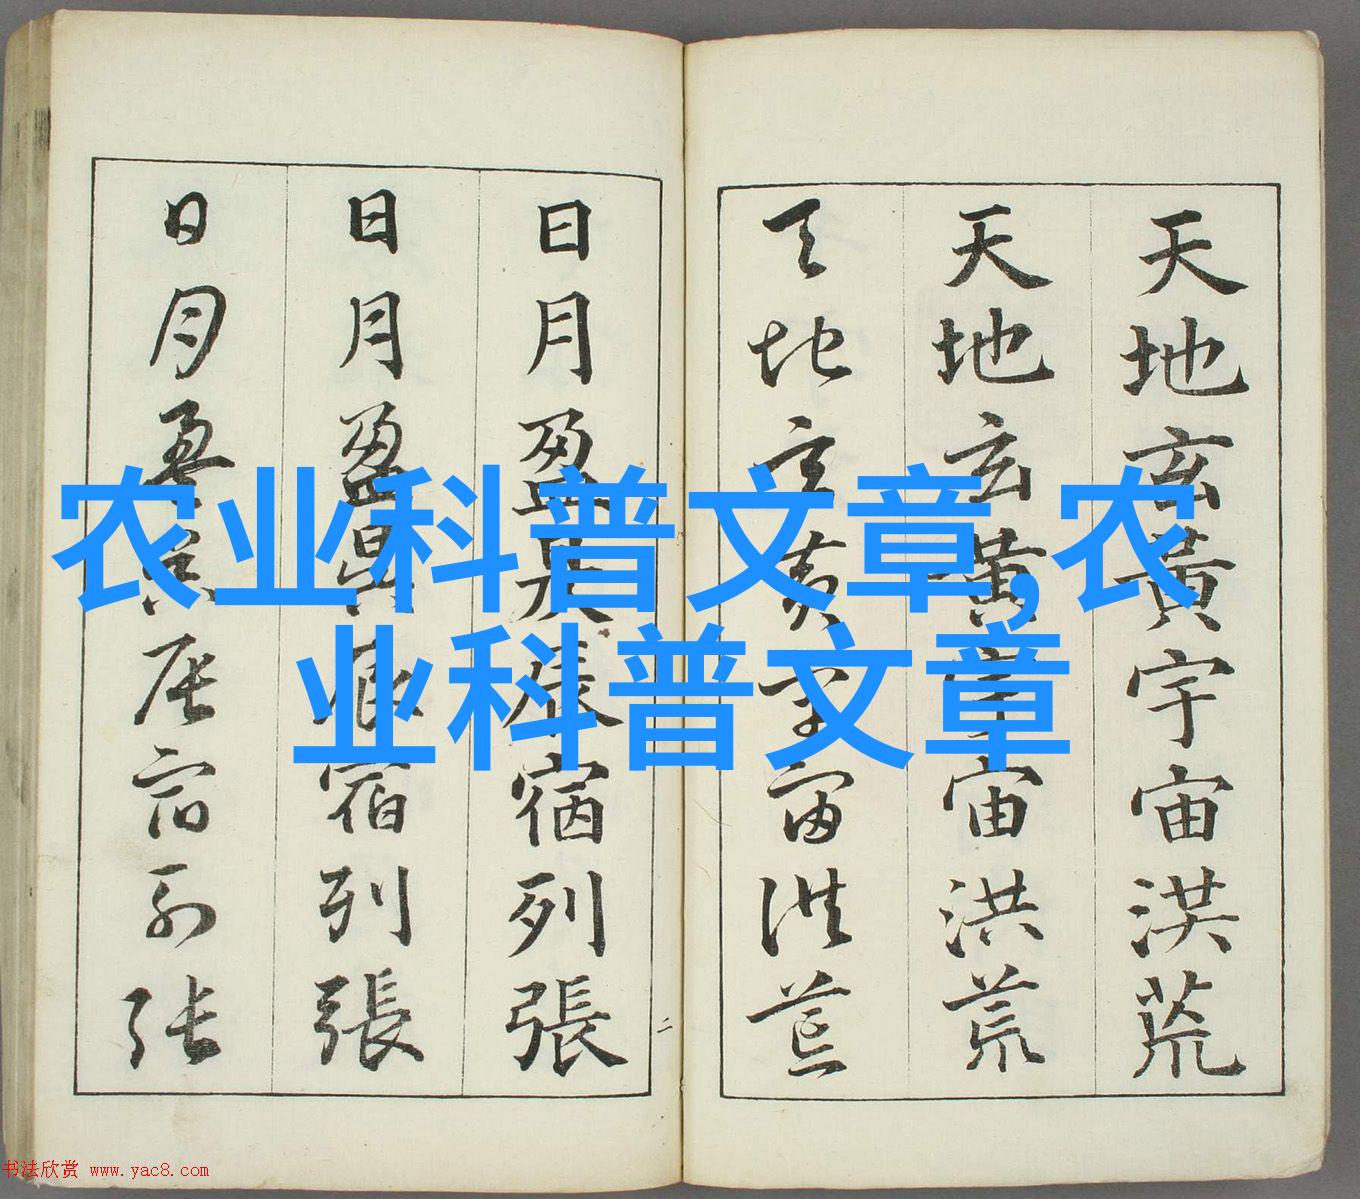 农业科普文章,农
业科普文章
天地玄黃宇宙洪荒
天地玄黃宇宙洪荒
天地玄黃宇宙洪荒
二
日月盈昃辰宿列張
日月盈昃辰宿列張
日月盈昃辰宿列張
书法欣赏 www.yac8.com